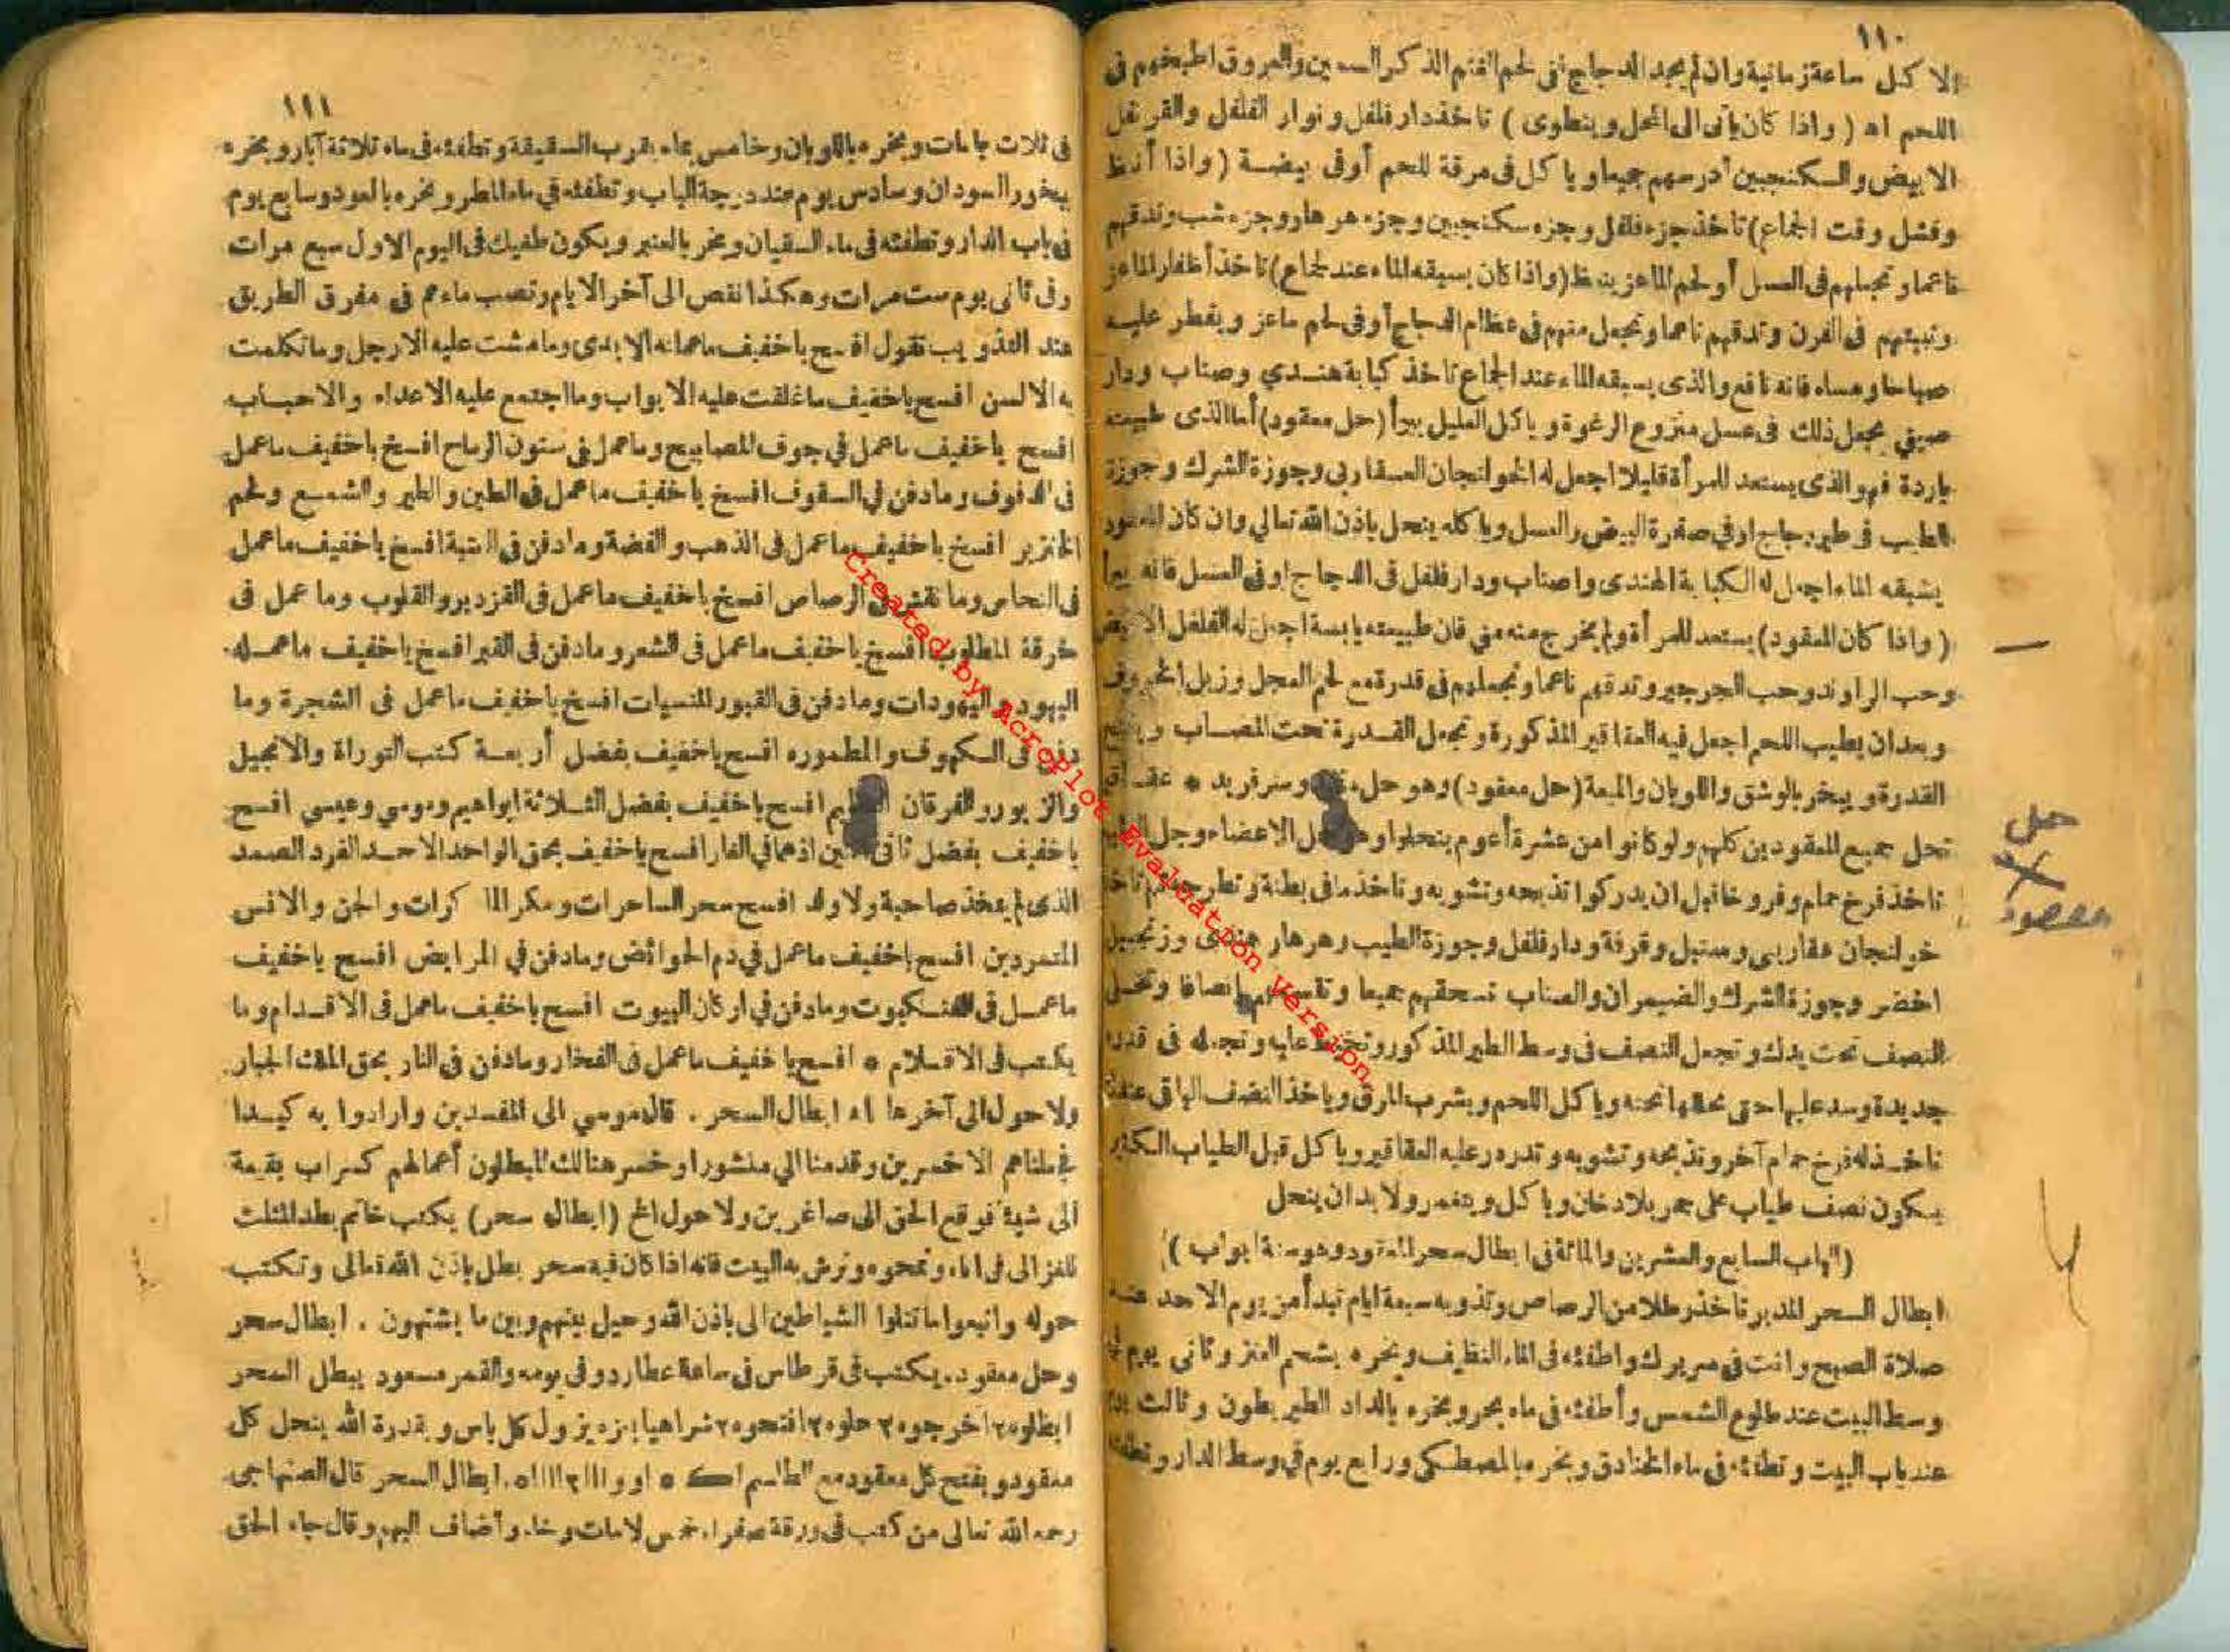 ١١٠
إلا كل ساعة زمانية وان لم يجد الدجاج فى لحم الغنم الذكر السمين والعروق اطبخهم فى
اللحم اه ( واذا كان يأتى الى المحل وينطوى ) تاخذ دار فلفل ونوار الفلفل والقرنفل
الابيض والسكنجبين أدرسهم جميعا وياكل فى مرقة اللحم أو فى بيضة ( واذا أنعظ
وفشل وقت الجماع) تاخذ جزء فلفل وجزء سكنجبين وجزء هرهار وجزء شب وتدقهم
ناعما وتجعلهم فى العسل أو لحم الماعز ينعظ (واذا كان يسبقه الماء عند الجماع) تاخذ أظفار الماعز
وتبيتهم فى الفرن وتدقهم ناعما وتجعل منهم فى عظام الدجاج أو فى لحم ماعز ويفطر عليه
صباحا ومساء فانه نافع والذى يسبقه الماء عند الجماع تاخذ كبابة هندي وصناب ودار
صيني يجعل ذلك فى عسل منزوع الرغوة وياكل العليل يبرأ (حل معقود) أما الذى طبيعته
باردة فهو الذى يستعد للمرأة قليلا اجعل له الخوانجان العقاربى وجوزة الشرك وجوزة
الطيب فى طير دجاج او في صفرة البيض والعسل وياكله ينحل باذن الله تعالي وان كان المعقود
يسبقه الماء اجعل له الكبابة الهندى واصناب ودار فلفل فى الدجاج او فى العسل فانه يبرأ
( واذا كان المعقود) يستعد للمرأة ولم يخرج منه مني فان طبيعته يابسة اجعل له الفلفل الابيض
وحب الراوند وحب الجرجير وتدقهم ناعما وتجعلهم فى قدرة مع لحم العجل وزبل الخروف
وبعد ان يطيب اللحم اجعل فيه العقاقير المذكورة وتجعل القدرة تحت المصاب ويفتح
القدرة ويبخر بالوشق واللوبان والميعة (حل معقود) وهو حل وسر فريد *
تحل جميع المعقودين كلهم ولو كانوا من عشرة أعوم ينحلوا وهو حل الاعضاء وحل
تاخذ فرخ حمام وفروخا قبل ان يدركوا تذبحه وتشويه وتاخذ ما فى بطنه وتطرحهم
خوانجان عقاربى وسنبل وقرفة ودار فلفل وجوزة الطيب وهرهار هندى وزنجبيل
اخضر وجوزة الشرك والضيمران والصناب تسحقهم جميعا وتقسمهم انصافا وتجعل
النصف تحت يدك وتجعل النصف فى وسط الطير المذكور وتخيط عليه وتجعله فى قدرة
جديدة وسد عليها حتى وياكل اللحم ويشرب المرق وياخذ النصف الباقى عندك
تاخذ له فرخ حمام آخر وتذبحه وتشويه وتدرر عليه العقاقير وياكل قبل الطياب الكثير
يكون نصف طياب على جمر بلا دخان وياكل ولا بد ان ينحل
(الباب السابع والعشرين والمائة فى ابطال سحر المعقود وهو ستة ابواب )
ابطال السحر المدبر تاخذ رطلا من الرصاص وتذوبه سبعة ايام تبدأ من يوم الاحد عند
صلاة الصبح وانت فى سريرك واطفئه فى الماء النظيف وتبخره بشحم العنز وثانى يوم فى
وسط البيت عند طلوع الشمس وأطفئه فى ماء بحر وبخره بالداد الطير بطون وثالث يوم
عند باب البيت وتطفئه فى ماء الخنادق وبخره بالمصطكى ورابع يوم في وسط الدار وتطفئه
حل
معقود
١١١
فى ثلاث جامات وبخره باللوبان وخامس بماء بقرب السقيفة وتطفئه فى ماء ثلاثة آبار وبخره
ببخور السودان وسادس يوم عند درجة الباب وتطفئه في ماء المطر وبخره بالعود وسابع يوم
فى باب الدار وتطفئه فى ماء السقيان وبخر بالعنبر ويكون طفيك فى اليوم الاول سبع مرات
وفى ثانى يوم ست مرات وهكذا نقص الى آخر الايام وتصب ماءهم فى مفرق الطريق
عند التذويب تقول افسخ ياخفيف ماعمله الايدى ومامشت عليه الارجل وماتكلمت
به الالسن افسخ ياخفيف ماغلقت عليه الابواب وما اجتمع عليه الاعداء والاحباب
افسخ ياخفيف ماعمل في جوف المصابيح وماعمل فى سنون الرماح افسخ ياخفيف ماعمل
فى الدفوف ومادفن في السقوف افسخ ياخفيف ماعمل فى الطين والطير والشمع ولحم
الخنزير افسخ ياخفيف ماعمل فى الذهب والفضة ومادفن فى العتبة افسخ ياخفيف ماعمل
فى النحاس وما نقش فى الرصاص افسخ ياخفيف ماعمل فى القزدير والقلوب وما عمل فى
خرقة المطلوب افسخ ياخفيف ماعمل فى الشعر ومادفن فى القبر افسخ ياخفيف ماعمله
اليهود واليهودات ومادفن فى القبور المنسيات افسخ ياخفيف ماعمل فى الشجرة وما
دفن فى الكهوف والمطموره افسخ ياخفيف بفضل أربعة كتب التوراة والانجيل
والزبور والفرقان العظيم افسخ ياخفيف بفضل الثلاثة ابراهيم وموسي وعيسى افسخ
ياخفيف بفضل ثانى اثنين اذهما في الغار افسخ ياخفيف بحق الواحد الاحد الفرد الصمد
الذى لم يتخذ صاحبة ولا ولد افسخ سحر الساحرات ومكر الماكرات والجن والانس
المتمردين افسخ ياخفيف ماعمل في دم الحوائض ومادفن في المرابض افسخ ياخفيف
ماعمل فى العنكبوت ومادفن في اركان البيوت افسخ ياخفيف ماعمل فى الاقدام وما
يكتب فى الاقلام * افسخ ياخفيف ماعمل فى الفخار ومادفن فى النار بحق الملك الجبار
ولا حول الى آخرها اه ابطال السحر . قال موسي الى المفسدين وارادوا به كيدا
فجعلناهم الاخسرين وقدمنا الي منثورا وخسر هنالك المبطلون أعمالهم كسراب بقيعة
الى شيئا فوقع الحق الى صاغرين ولا حول الخ (ابطال سحر) يكتب خاتم بطد المثلث
للغزالى فى اناء وتمحوه وترش به البيت فانه اذا كان فيه سحر بطل باذن الله تعالى وتكتب
حوله واتبعوا ماتتلوا الشياطين الى باذن الله وحيل بينهم وبين ما يشتهون . ابطال سحر
وحل معقود . يكتب فى قرطاس فى ساعة عطارد وفى يومه والقمر مسعود يبطل السحر
ابطلوه ٢ اخرجوه ٢ حلوه ٢ افتحوه ٢ شراهيا يزول كل باس وبقدرة الله ينحل كل
معقود ويفتح كل معقود مع الطلسم ابطال السحر قال الصنهاجى
رحمه الله تعالى من كتب فى ورقة صفراء خمس لامات وخاء وأضاف اليهم وقال جاء الحق
Created by AcroPlot Evaluation Version